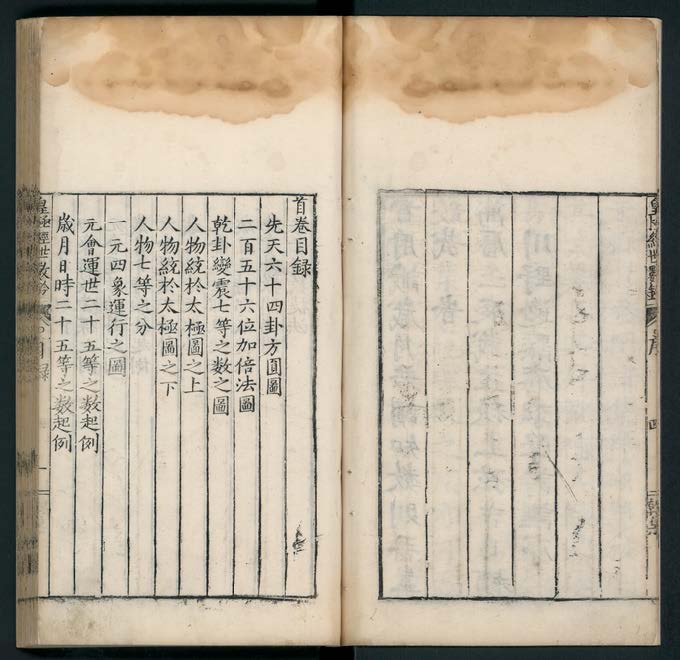 皇極經世數
序
四
首卷目錄
先天六十四卦方圓圖
二百五十六位加倍法圖
乾卦變震七等之數之圖
人物統於太極圖之上
人物統於太極圖之下
人物七等之分
一元四象運行之圖
元會運世二十五等之數起例
歲月日時二十五等之數起例
皇極經世數
目錄
一